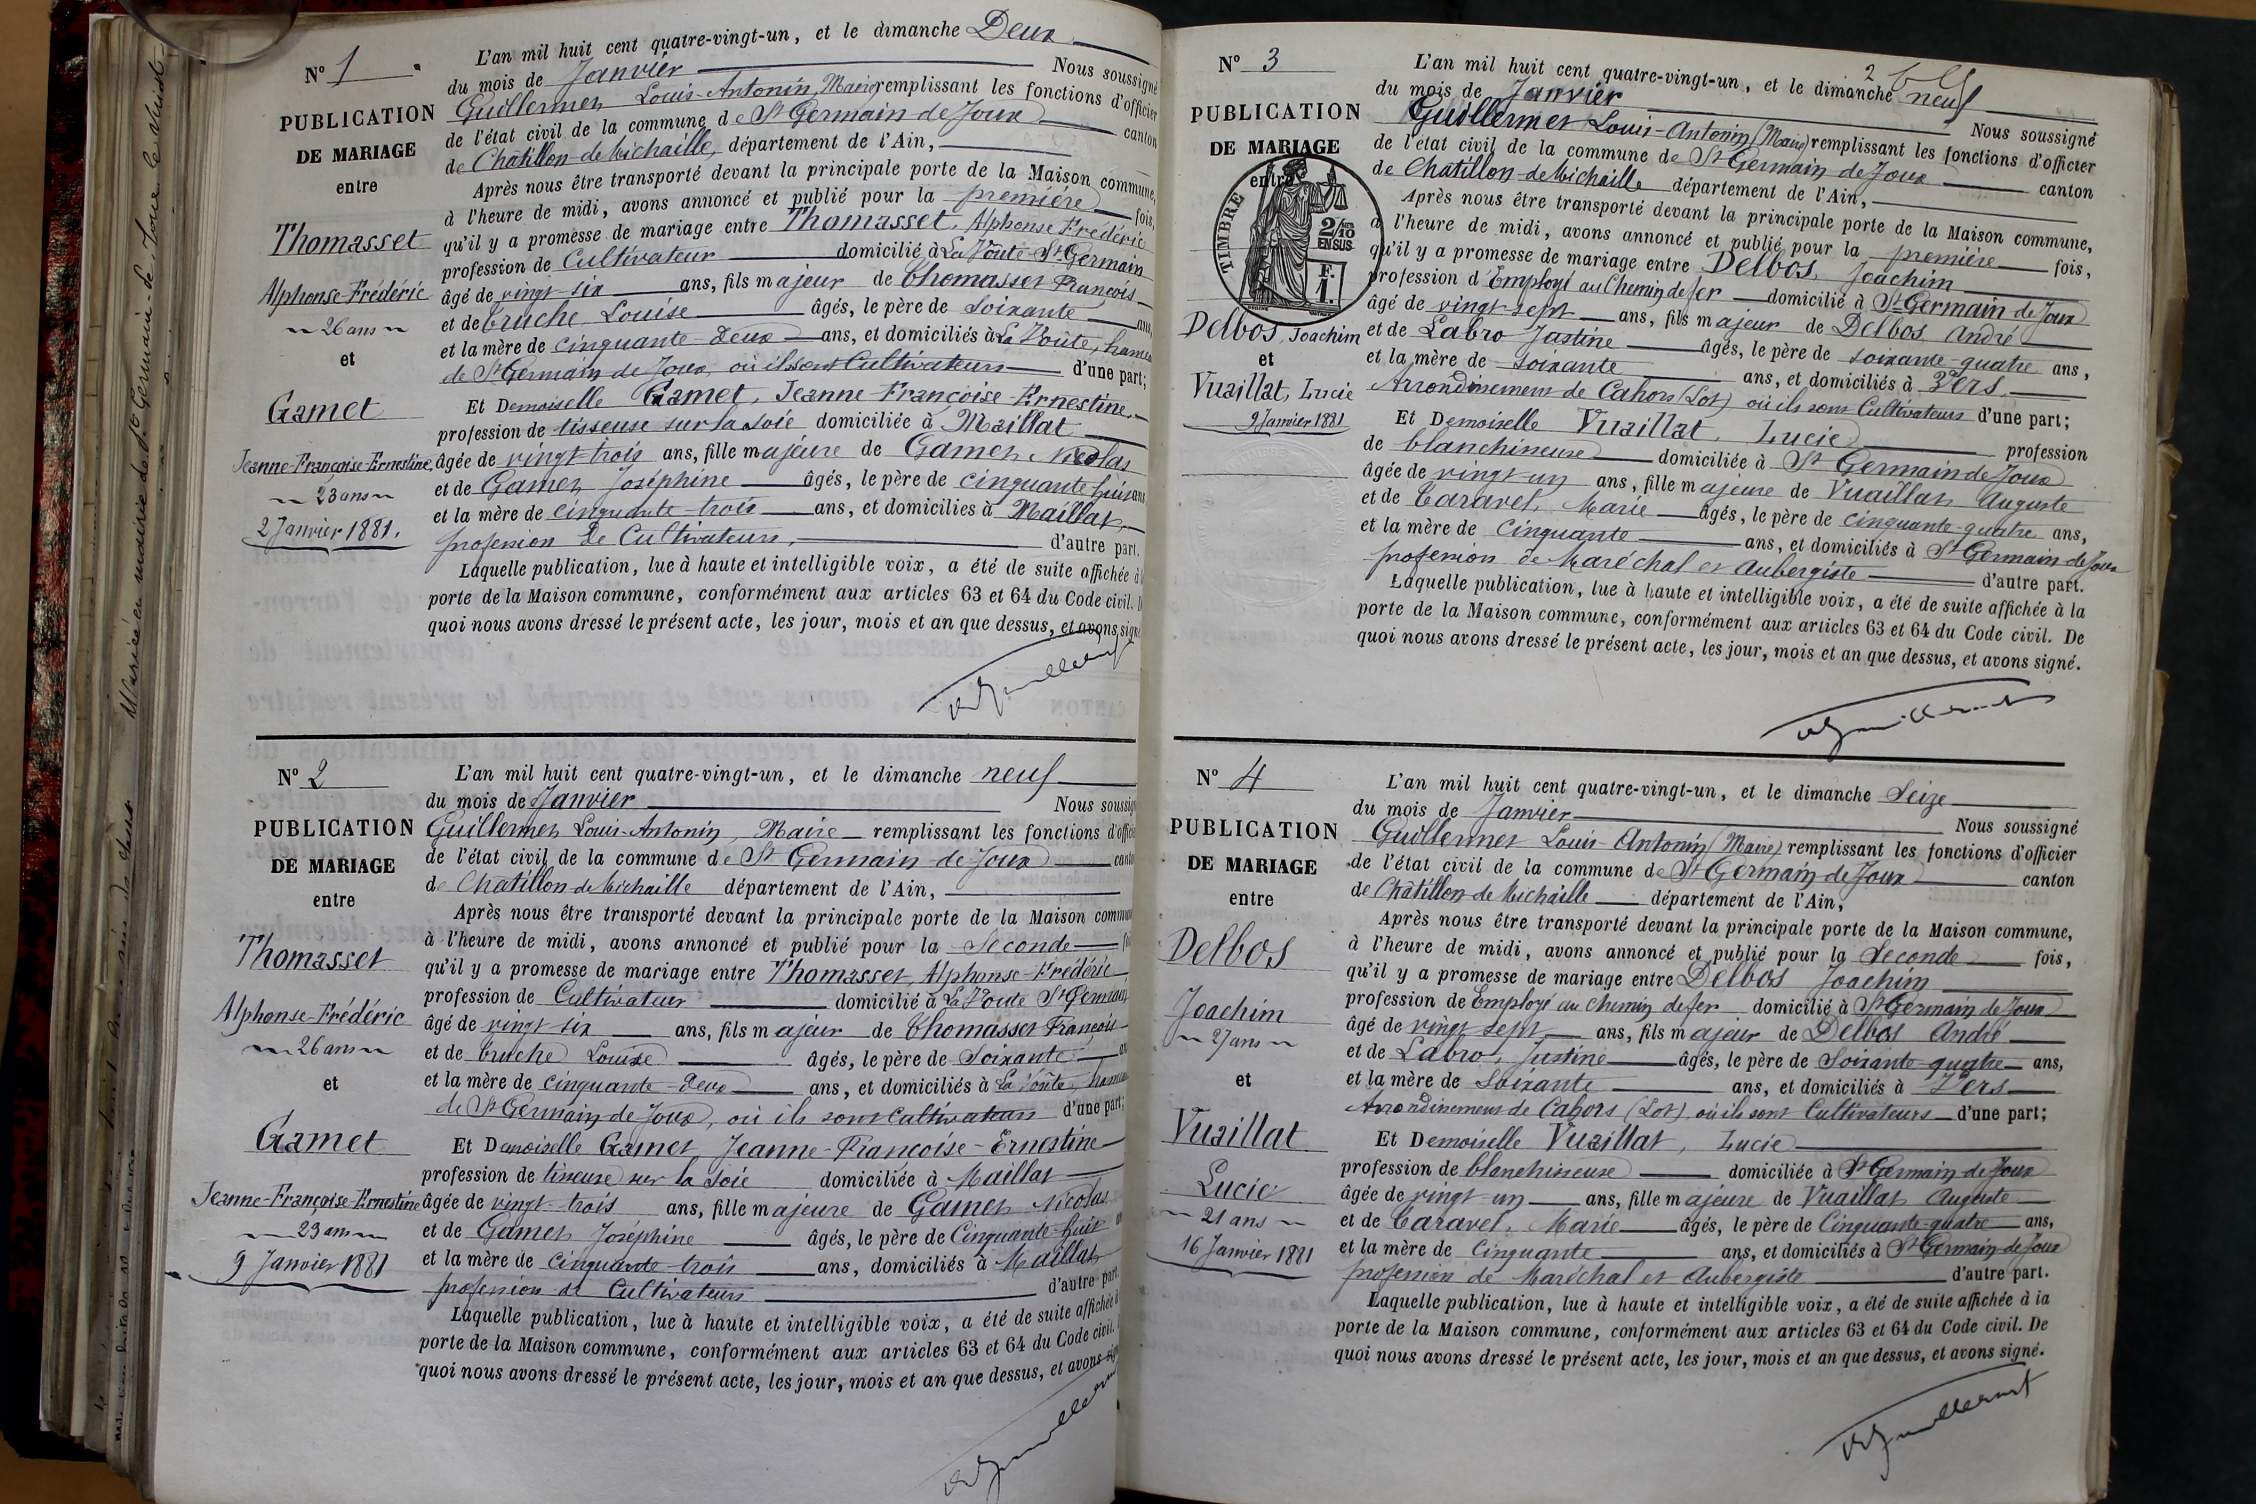 N° 1
PUBLICATION
DE MARIAGE
entre
Thomasset
Alphonse-Frédéric
26 ans
et
Gamet
Jeanne-Françoise-Ernestine
23 ans
2 Janvier 1881.
L'an mil huit cent quatre-vingt-un, et le dimanche Deux
du mois de Janvier Nous soussigné
Guillermet Louis-Antonin, Maire, remplissant les fonctions d'officier
de l'état civil de la commune de St Germain de Joux canton
de Châtillon-de-Michaille, département de l'Ain,
Après nous être transporté devant la principale porte de la Maison commune,
à l'heure de midi, avons annoncé et publié pour la première fois,
qu'il y a promesse de mariage entre Thomasset, Alphonse Frédéric
profession de Cultivateur domicilié à La Voûte St Germain
âgé de vingt six ans, fils majeur de Thomasset François
et de Truche Louise âgés, le père de Soixante ans,
et la mère de cinquante-deux ans, et domiciliés à La Voûte, hameau
de St Germain de Joux, où ils sont Cultivateurs d'une part;
Et Demoiselle Gamet, Jeanne-Françoise-Ernestine,
profession de tisseuse sur la soie domiciliée à Maillat
âgée de vingt-trois ans, fille majeure de Gamet Nicolas
et de Gamet Joséphine âgés, le père de cinquante huit ans
et la mère de cinquante-trois ans, et domiciliés à Maillat,
profession de Cultivateurs, d'autre part.
Laquelle publication, lue à haute et intelligible voix, a été de suite affichée à
porte de la Maison commune, conformément aux articles 63 et 64 du Code civil.
quoi nous avons dressé le présent acte, les jour, mois et an que dessus, et avons signé
N° 2
PUBLICATION
DE MARIAGE
entre
Thomasset
Alphonse-Frédéric
26 ans
et
Gamet
Jeanne-Françoise-Ernestine
23 ans
9 Janvier 1881
L'an mil huit cent quatre-vingt-un, et le dimanche neuf
du mois de Janvier Nous soussig
Guillermet Louis-Antonin, Maire remplissant les fonctions d'officie
de l'état civil de la commune de St Germain-de-Joux canto
de Châtillon de Michaille département de l'Ain,
Après nous être transporté devant la principale porte de la Maison commun
à l'heure de midi, avons annoncé et publié pour la Seconde
qu'il y a promesse de mariage entre Thomasset, Alphonse-Frédéric
profession de Cultivateur domicilié à La Voute St Germain
âgé de vingt six ans, fils majeur de Thomasset François
et de Truche Louise âgés, le père de Soixante
et la mère de cinquante-deux ans, et domiciliés à La Voûte, hameau
de St Germain de Joux, où ils sont Cultivateurs d'une part;
Et Demoiselle Gamet, Jeanne-Françoise-Ernestine
profession de tisseuse sur la Soie domiciliée à Maillat
âgée de vingt-trois ans, fille majeure de Gamet Nicolas
et de Gamet Joséphine âgés, le père de Cinquante-huit
et la mère de cinquante-trois ans, domiciliés à Maillat
profession de Cultivateurs d'autre part.
Laquelle publication, lue à haute et intelligible voix, a été de suite affichée à
porte de la Maison commune, conformément aux articles 63 et 64 du Code civil.
quoi nous avons dressé le présent acte, les jour, mois et an que dessus, et avons sign
N° 3
PUBLICATION
DE MARIAGE
entre
TIMBRE
2/10
EN SUS
F.
1.
Delbos, Joachim
et
Vuaillat, Lucie
9 Janvier 1881
L'an mil huit cent quatre-vingt-un, et le dimanche neuf
du mois de Janvier Nous soussigné
Guillermet Louis-Antonin (Maire) remplissant les fonctions d'officier
de l'état civil de la commune de St Germain de Joux canton
de Châtillon-de-Michaille département de l'Ain,
Après nous être transporté devant la principale porte de la Maison commune,
à l'heure de midi, avons annoncé et publié pour la première fois,
qu'il y a promesse de mariage entre Delbos, Joachim
profession d'Employé au Chemin de fer domicilié à St Germain de Joux
âgé de vingt-sept ans, fils majeur de Delbos André
et de Labro Justine âgés, le père de soixante-quatre ans,
et la mère de soixante ans, et domiciliés à Vers
Arrondissement de Cahors (Lot) où ils sont Cultivateurs d'une part;
Et Demoiselle Vuaillat, Lucie profession
de blanchisseuse domiciliée à St Germain de Joux
âgée de vingt-un ans, fille majeure de Vuaillat Auguste
et de Caravel, Marie âgés, le père de cinquante-quatre ans,
et la mère de cinquante ans, et domiciliés à St Germain-de-Joux
profession de Maréchal et Aubergiste d'autre part.
Laquelle publication, lue à haute et intelligible voix, a été de suite affichée à la
porte de la Maison commune, conformément aux articles 63 et 64 du Code civil. De
quoi nous avons dressé le présent acte, les jour, mois et an que dessus, et avons signé.
N° 4
PUBLICATION
DE MARIAGE
entre
Delbos
Joachim
27 ans
et
Vuaillat
Lucie
21 ans
16 Janvier 1881
L'an mil huit cent quatre-vingt-un, et le dimanche Seize
du mois de Janvier Nous soussigné
Guillermet Louis-Antonin (Maire) remplissant les fonctions d'officier
de l'état civil de la commune de St Germain de Joux canton
de Châtillon de Michaille département de l'Ain,
Après nous être transporté devant la principale porte de la Maison commune,
à l'heure de midi, avons annoncé et publié pour la Seconde fois,
qu'il y a promesse de mariage entre Delbos Joachim
profession de Employé au Chemin de fer domicilié à St Germain de Joux
âgé de vingt sept ans, fils majeur de Delbos André
et de Labro, Justine âgés, le père de Soixante-quatre ans,
et la mère de Soixante ans, et domiciliés à Vers
Arrondissement de Cahors (Lot) où ils sont Cultivateurs d'une part;
Et Demoiselle Vuaillat, Lucie
profession de blanchisseuse domiciliée à St Germain-de-Joux
âgée de vingt un ans, fille majeure de Vuaillat Auguste
et de Caravel, Marie âgés, le père de Cinquante-quatre ans,
et la mère de Cinquante ans, et domiciliés à St Germain-de-Joux
profession de Maréchal et Aubergiste d'autre part.
Laquelle publication, lue à haute et intelligible voix, a été de suite affichée à la
porte de la Maison commune, conformément aux articles 63 et 64 du Code civil. De
quoi nous avons dressé le présent acte, les jour, mois et an que dessus, et avons signé.